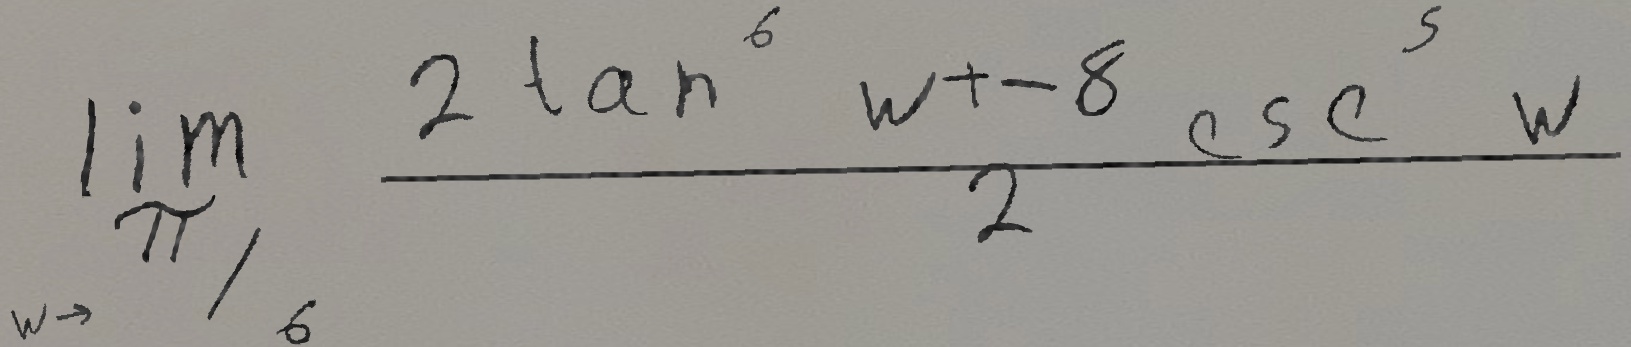 \lim_{w \to \pi/6} \frac{2 \tan^6 w + -8 \csc^5 w}{2}